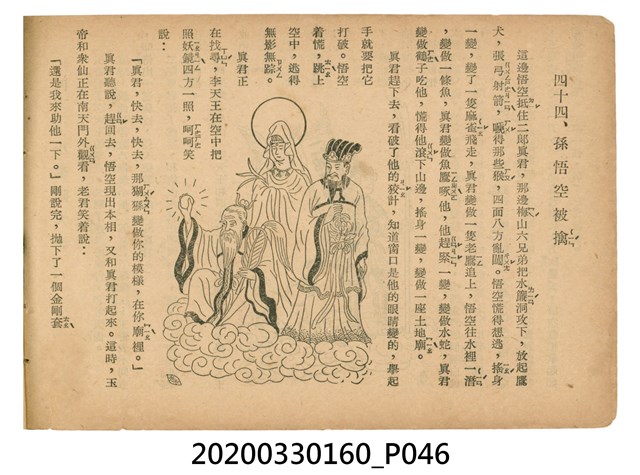 四十四、孫悟空被擒
這邊悟空抵住二郎真君，那邊梅山六兄弟把水簾洞攻下，放起鷹
犬，張弓射箭，嚇得那些猴，四面八方亂闖。悟空慌得想逃，搖身
一變，變了一隻麻雀飛走，真君變做一隻老鷹追上，悟空往水裡一潛
，變做一條魚，真君變做魚鷹啄他，他趕緊一變，變做水蛇，真君
變做鶴子吃他，慌得他滾下山邊，搖身一變，變做一座土地廟。
真君趕下去，看破了他的狡計，知道窗口是他的眼睛變的，舉起
手就要把它
打破。悟空
着慌，跳上
空中，逃得
無影無踪。
真君正
在找尋，李天王在空中把
照妖鏡四方一照，呵呵笑
說：
「真君，快去，快去，那猢猻變做你的模樣，在你廟裡。」
真君聽說，趕回去，悟空現出本相，又和真君打起來。這時，玉
帝和衆仙正在南天門外觀看，老君笑着說：
「還是我來助他一下。」剛說完，拋下了一個金剛套
20200330160_P046